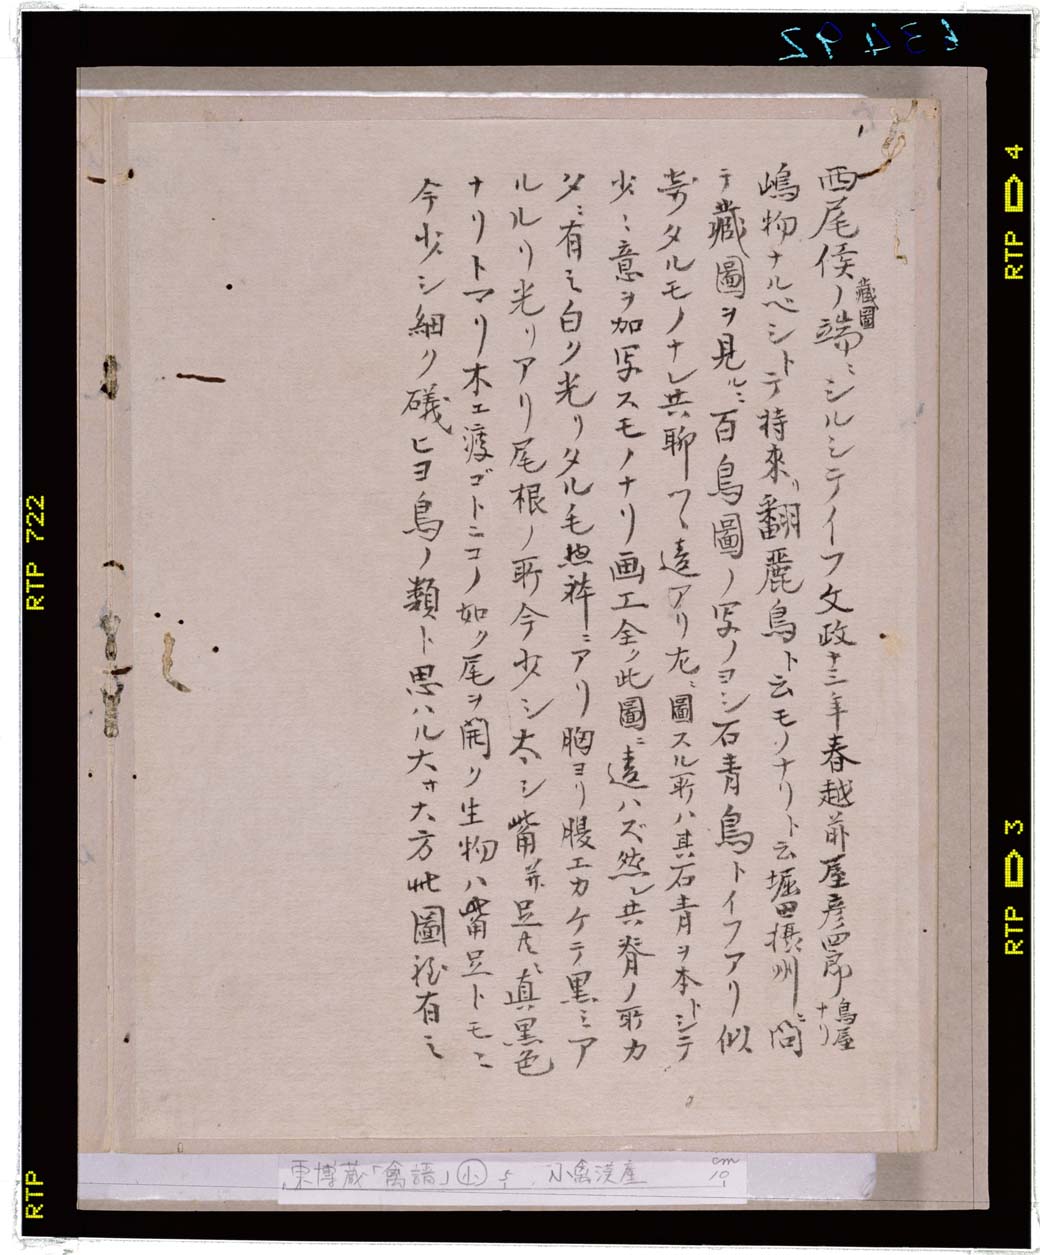 西尾侯ノ蔵圖端ニシルシテイフ文政十三年春越前屋彦四郎鳥屋ナリ
嶋物ナルベシトテ持来リ翻麗鳥ト云モノナリト云堀田摂州ニ問
テ藏圖ヲ見ルニ百鳥圖ノ写ノヨシ石青鳥トイフアリ似
寄タルモノナレ共聊ツヽ違アリ左ニ圖スル所ハ其石青ヲ本トシテ
少ミ意ヲ加写スモノナリ画工全ク此圖ニ違ハズ然レ共脊ノ所カ
タニ有ミ白ク光リタル毛ニアリ胸ヨリ腹エカケテ黒ミア
ルルリ光リアリ尾根ノ所今少シ太シ嘴并足共ニ真黒色
ナリトマリ木エ渡ゴトニコノ如ク尾ヲ開ク生物ハ嘴足トモニ
今少シ細ク磯ヒヨ鳥ノ類ト思ハル大サ大方此圖程有ミ
東博蔵「禽譜」小禽漢産
cm
10
63492
RTP 4
RTP 3
RTP 722
RTP